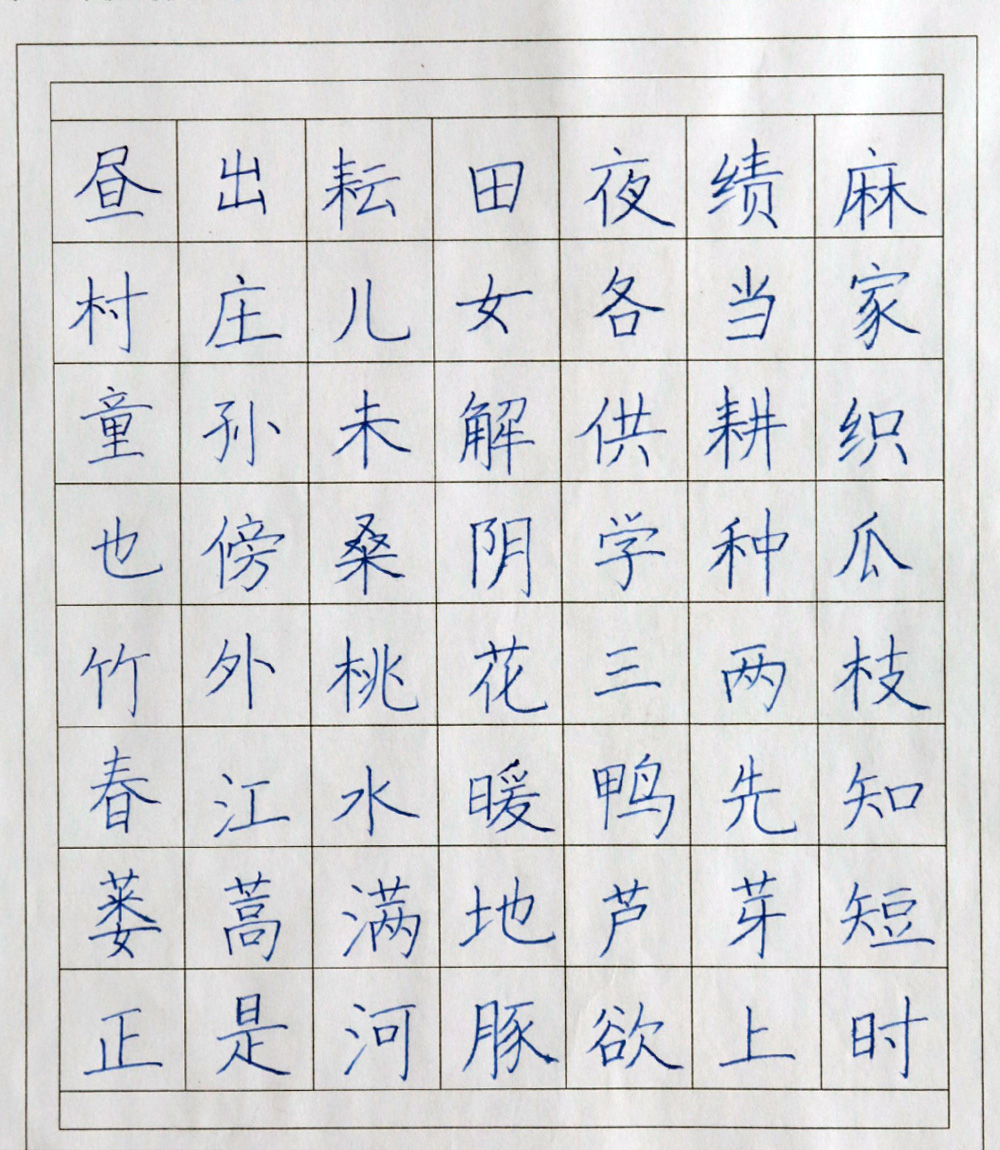 昼出耘田夜绩麻
村庄儿女各当家
童孙未解供耕织
也傍桑阴学种瓜
竹外桃花三两枝
春江水暖鸭先知
蒌蒿满地芦芽短
正是河豚欲上时